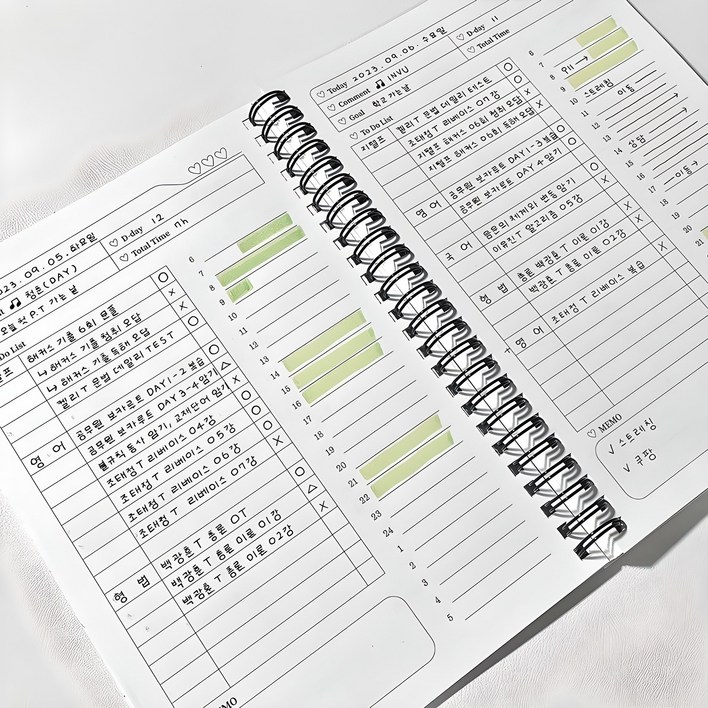 2023. 09. 05. 화요일
청춘(DAY)
오늘 첫 P.T 가는 날
D-day 12
Total Time 7h
해커스 기출 6회 모플
↳ 해커스 기출 청취 오답
↳ 해커스 기출 독해 오답
켈리T 문법 데일리 TEST
영어
공무원 보카루트 DAY 1-2 복습
공무원 보카루트 DAY 3-4 암기
불규칙 동사 암기, 교재단어 암기
조태정T 리베이스 04강
조태정T 리베이스 05강
조태정T 리베이스 06강
조태정T 리베이스 07강
형법
백광훈T 총론 OT
백광훈T 총론 이론 01강
백광훈T 총론 이론 02강
6
7
8
9
10
11
12
13
14
15
16
17
18
19
20
21
22
23
24
1
2
3
4
5
Today 2023. 09. 06. 수요일
Comment INVU
Goal 학교가는날
D-day 11
Total Time
To Do List
지텔프
켈리T 문법 데일리 테스트
조태정T 리베이스 07강
지텔프 해커스 06회 청취 오답
지텔프 해커스 06회 독해 오답
영어
공무원 보카루트 DAY 1-3 복습
공무원 보카루트 DAY 4 암기
국어
음운의 체계와 변동 암기
이유진T 알고리즘 05강
형법
백광훈T 총론 이론 02강
영어
조태정T 리베이스 복습
MEMO
√ 스트레칭
√ 쿠팡
6
7
8
9
10 스트레칭
11 이동
12
13
14 상담
15
16
17 이동
18
19
20
21